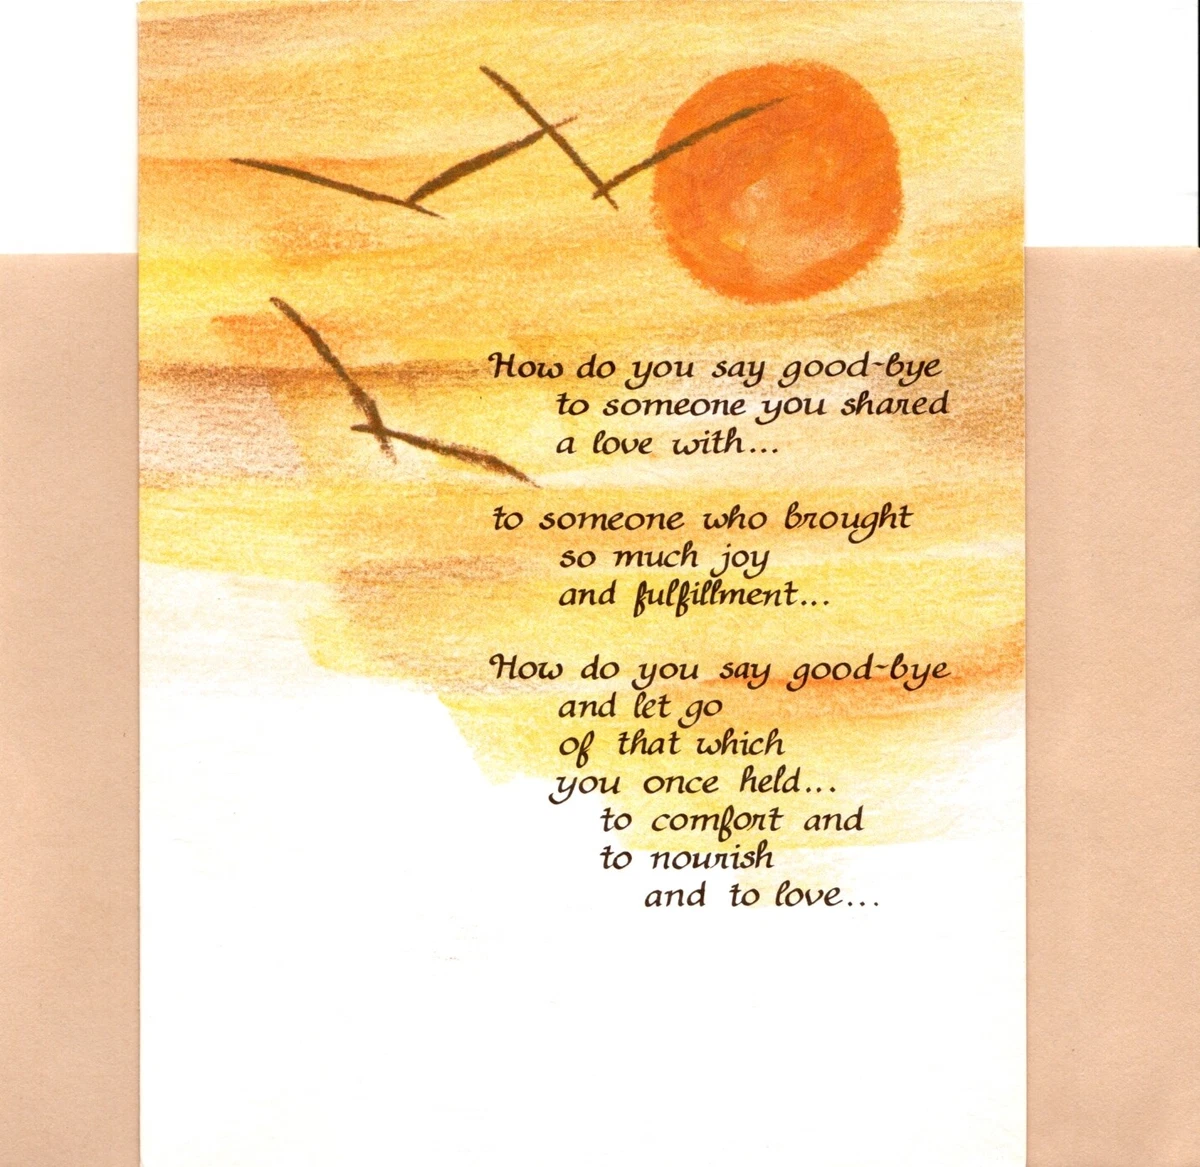 How do you say good-bye
to someone you shared
a love with...
to someone who brought
so much joy
and fulfillment...
How do you say good-bye
and let go
of that which
you once held...
to comfort and
to nourish
and to love...